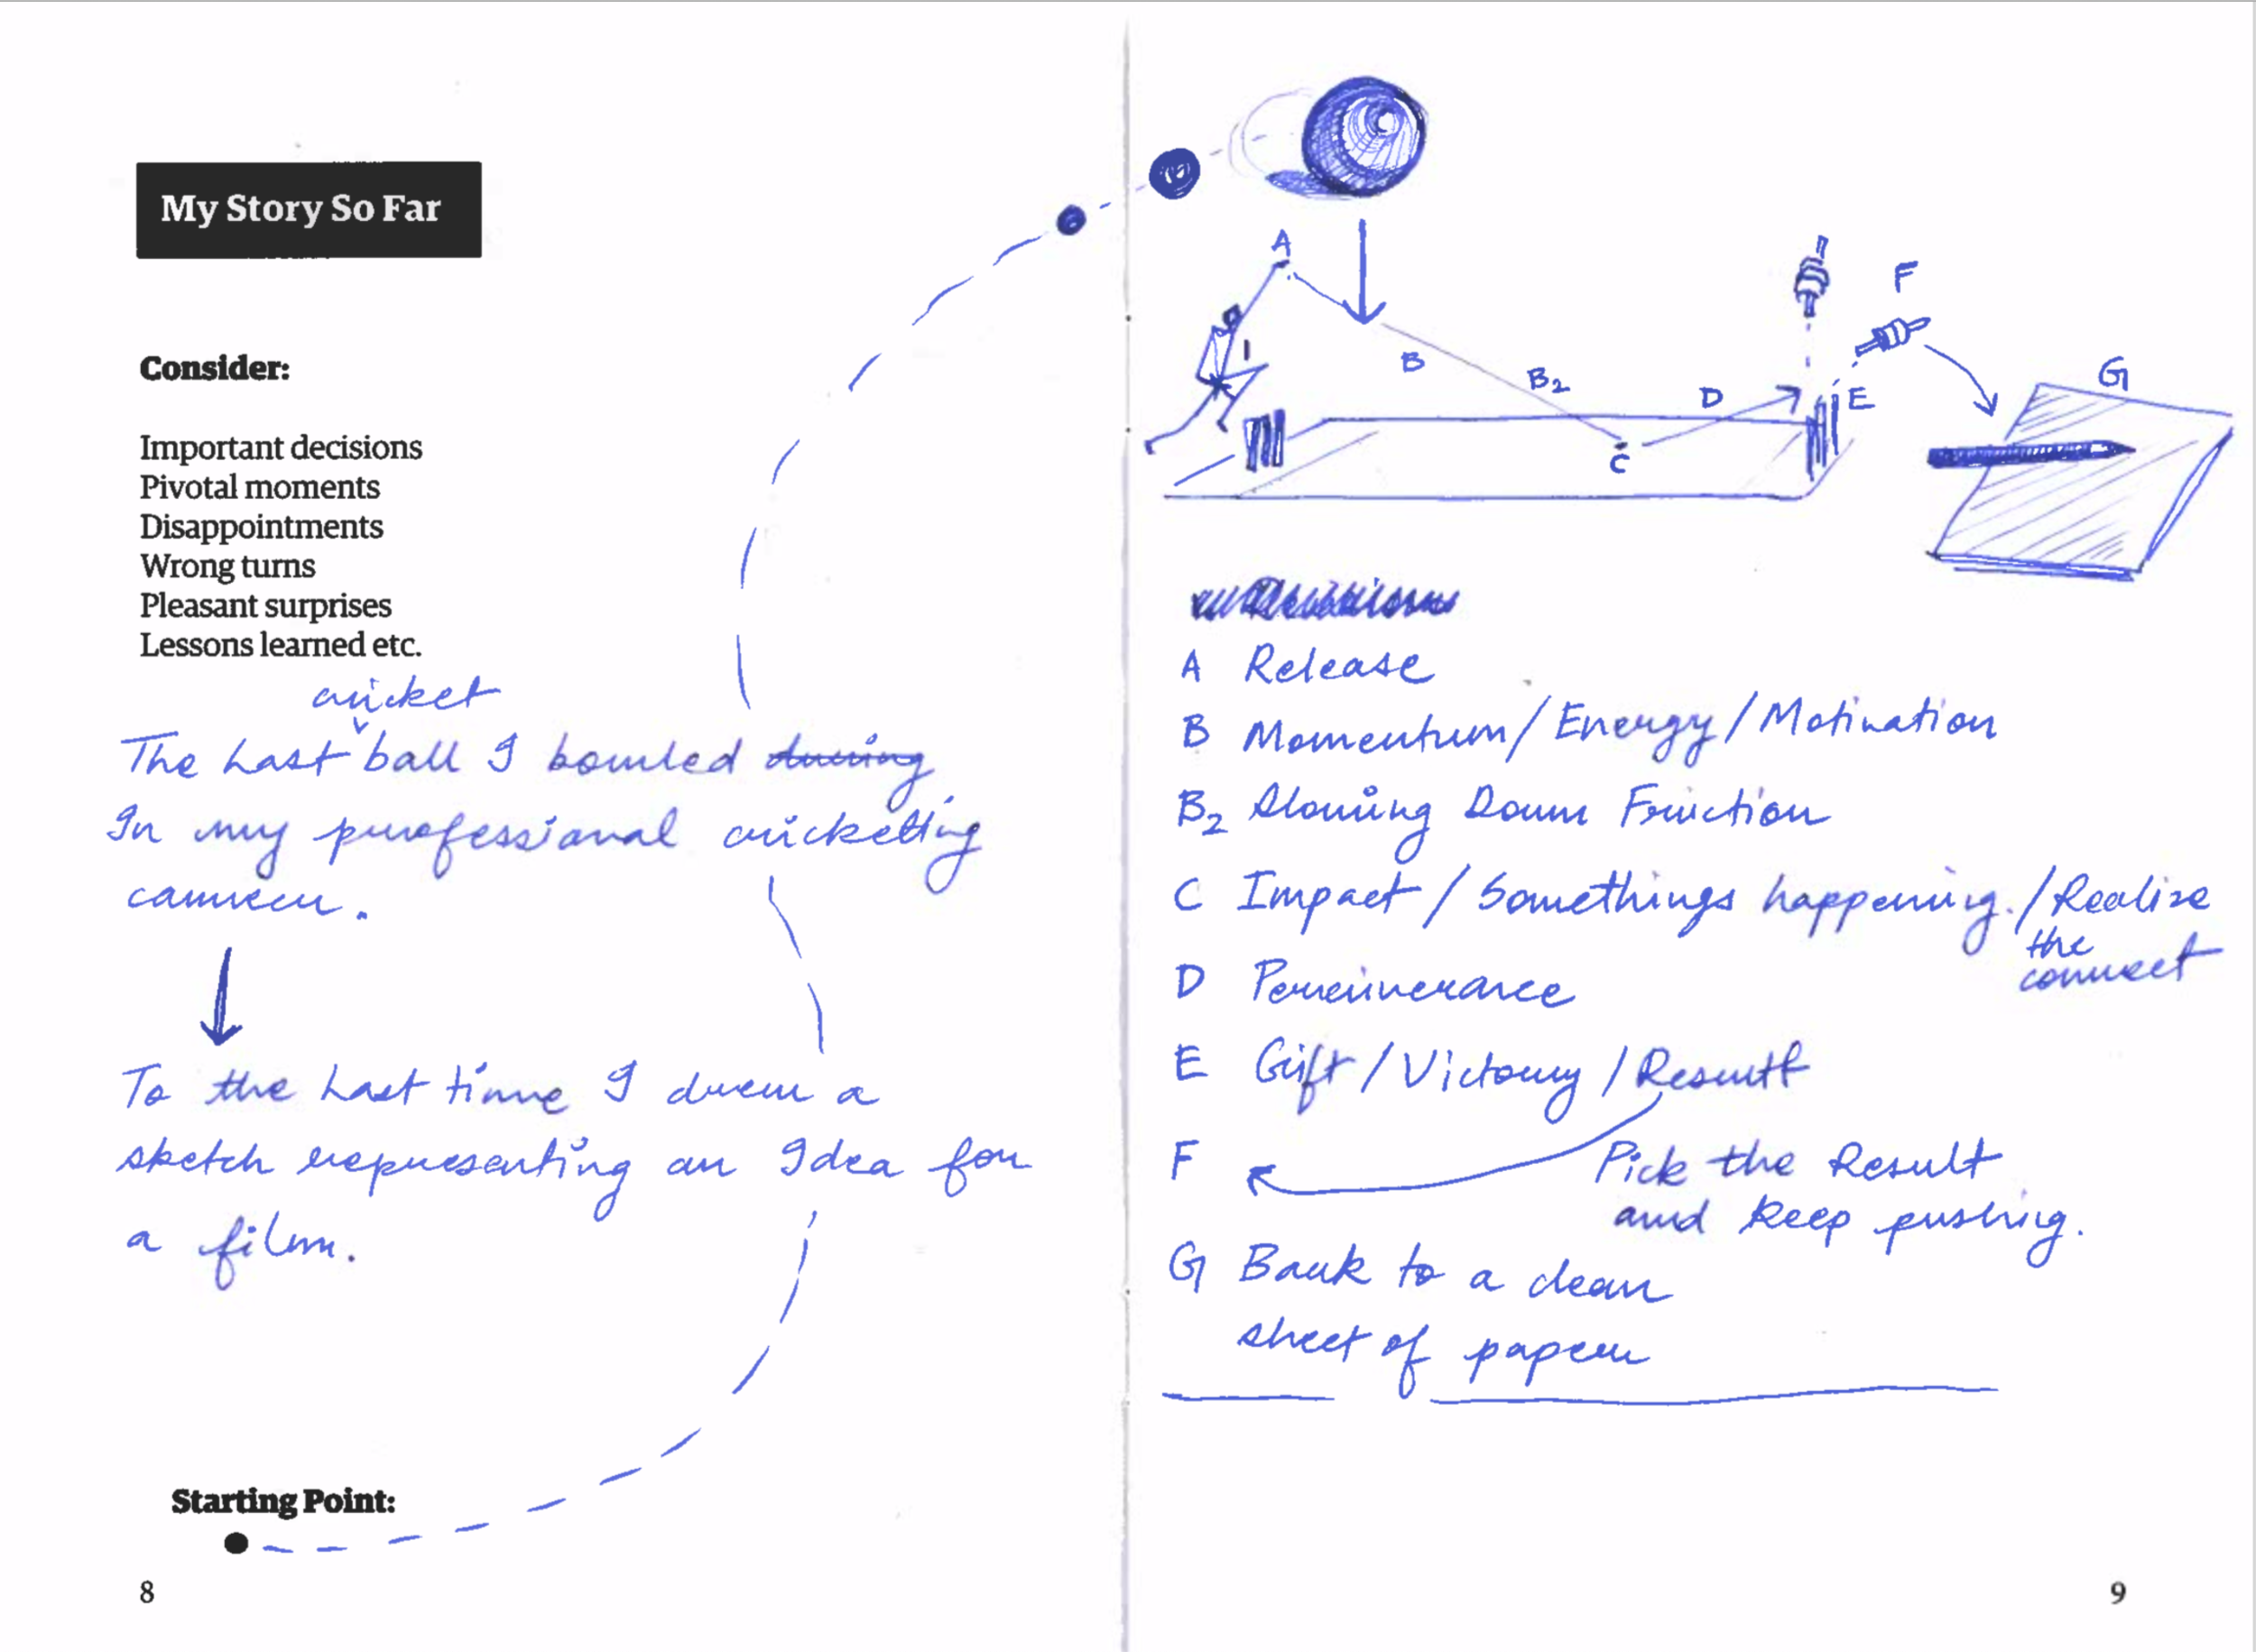 My Story So Far
Consider:
Important decisions
Pivotal moments
Disappointments
Wrong turns
Pleasant surprises
Lessons learned etc.
cricket
The Last ball I bowled during
In my professional cricketing
career.
To the Last time I drew a
sketch representing an Idea for
a film.
Starting Point:
8
A
B
B2
C
D
E
F
G
A Release
B Momentum/Energy/Motivation
B2 Slowing Down Friction
C Impact/Somethings happening./Realise
the
connect
D Perseinverance
E Gift/Victory/Result
F Pick the Result
and keep pushing.
G Back to a clean
sheet of paper
9